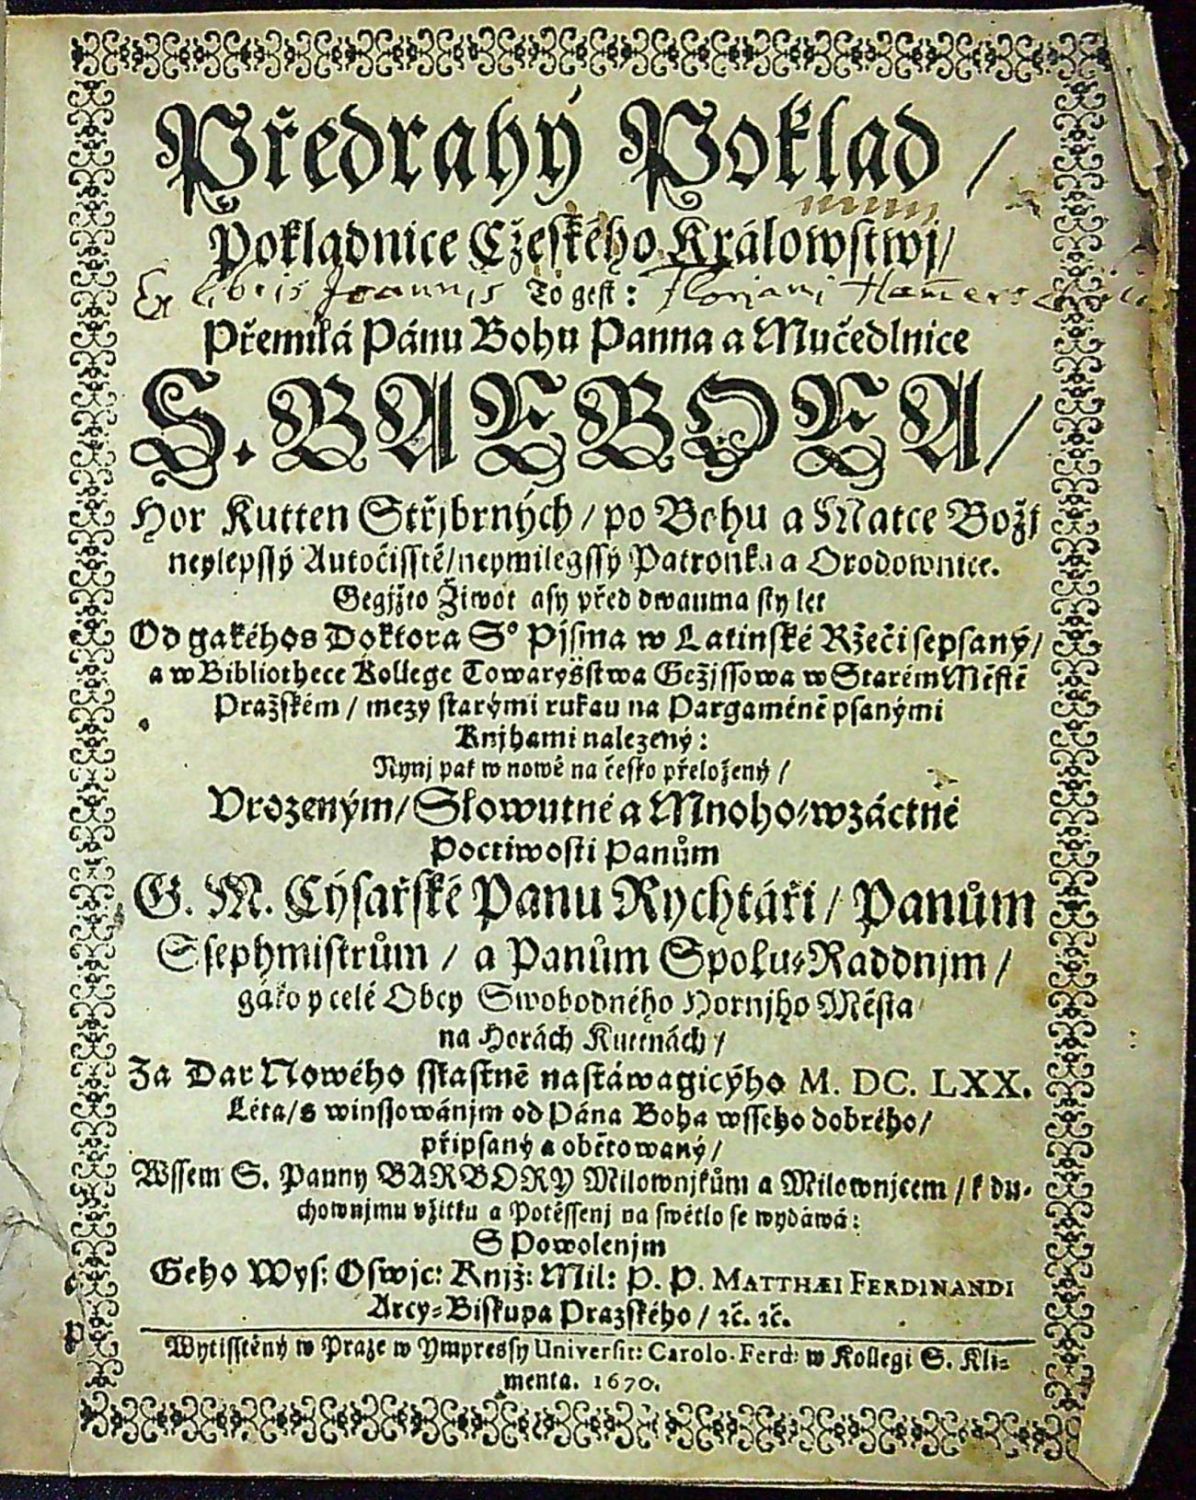 Předrahý Poklad /
Pokladnice Cžeského Králowstwj/
Ex libris Joannis To gest: Floriani
Přemilá Pánu Bohu Panna a Mučedlnice
S. BARBORA/
Hor Kutten Střjbrných / po Bohu a Matce Božj
neylepssý Autočisstě/neymilegssý Patronka a Orodownice.
Gegjžto Žiwot asy před dwauma sty let
Od gakéhos Doktora S° Pjsma w Latinské Ržeči sepsaný/
a w Bibliothece Kollege Towaryšstwa Gežjssowa w Starém Městě
Pražském / mezy starými rukau na Pargaméně psanými
Knjhami nalezený:
Nynj pak w nowě na česko přeložený /
Vrozeným/ Slowutné a Mnoho-wzáctné
Poctiwosti Panům
G. M. Cýsařské Panu Rychtáři / Panům
Ssephmistrům / a Panům Spolu-Raddnjm /
gáko y celé Obcy Swobodného Hornjho Města
na Horách Kuttnách /
Za Dar Nowého sstastně nastáwagicýho M. DC. LXX.
Léta/ s winssowánjm od Pána Boha wsseho dobrého/
připsaný a obětowaný/
Wssem S. Panny BARBORY Milownjkům a Milownjcem / k du-
chownjmu vžitku a Potěssenj na swětlo se wydáwá:
S Powolenjm
Geho Wys: Oswjc: Knjž: Mil: P. P. MATTHÆI FERDINANDI
Arcy-Biskupa Prazského / ꝛč. ꝛč.
Wytisstěný w Praze w Ympressy Universit: Carolo-Ferd: w Kollegi S. Kli-
menta. 1670.